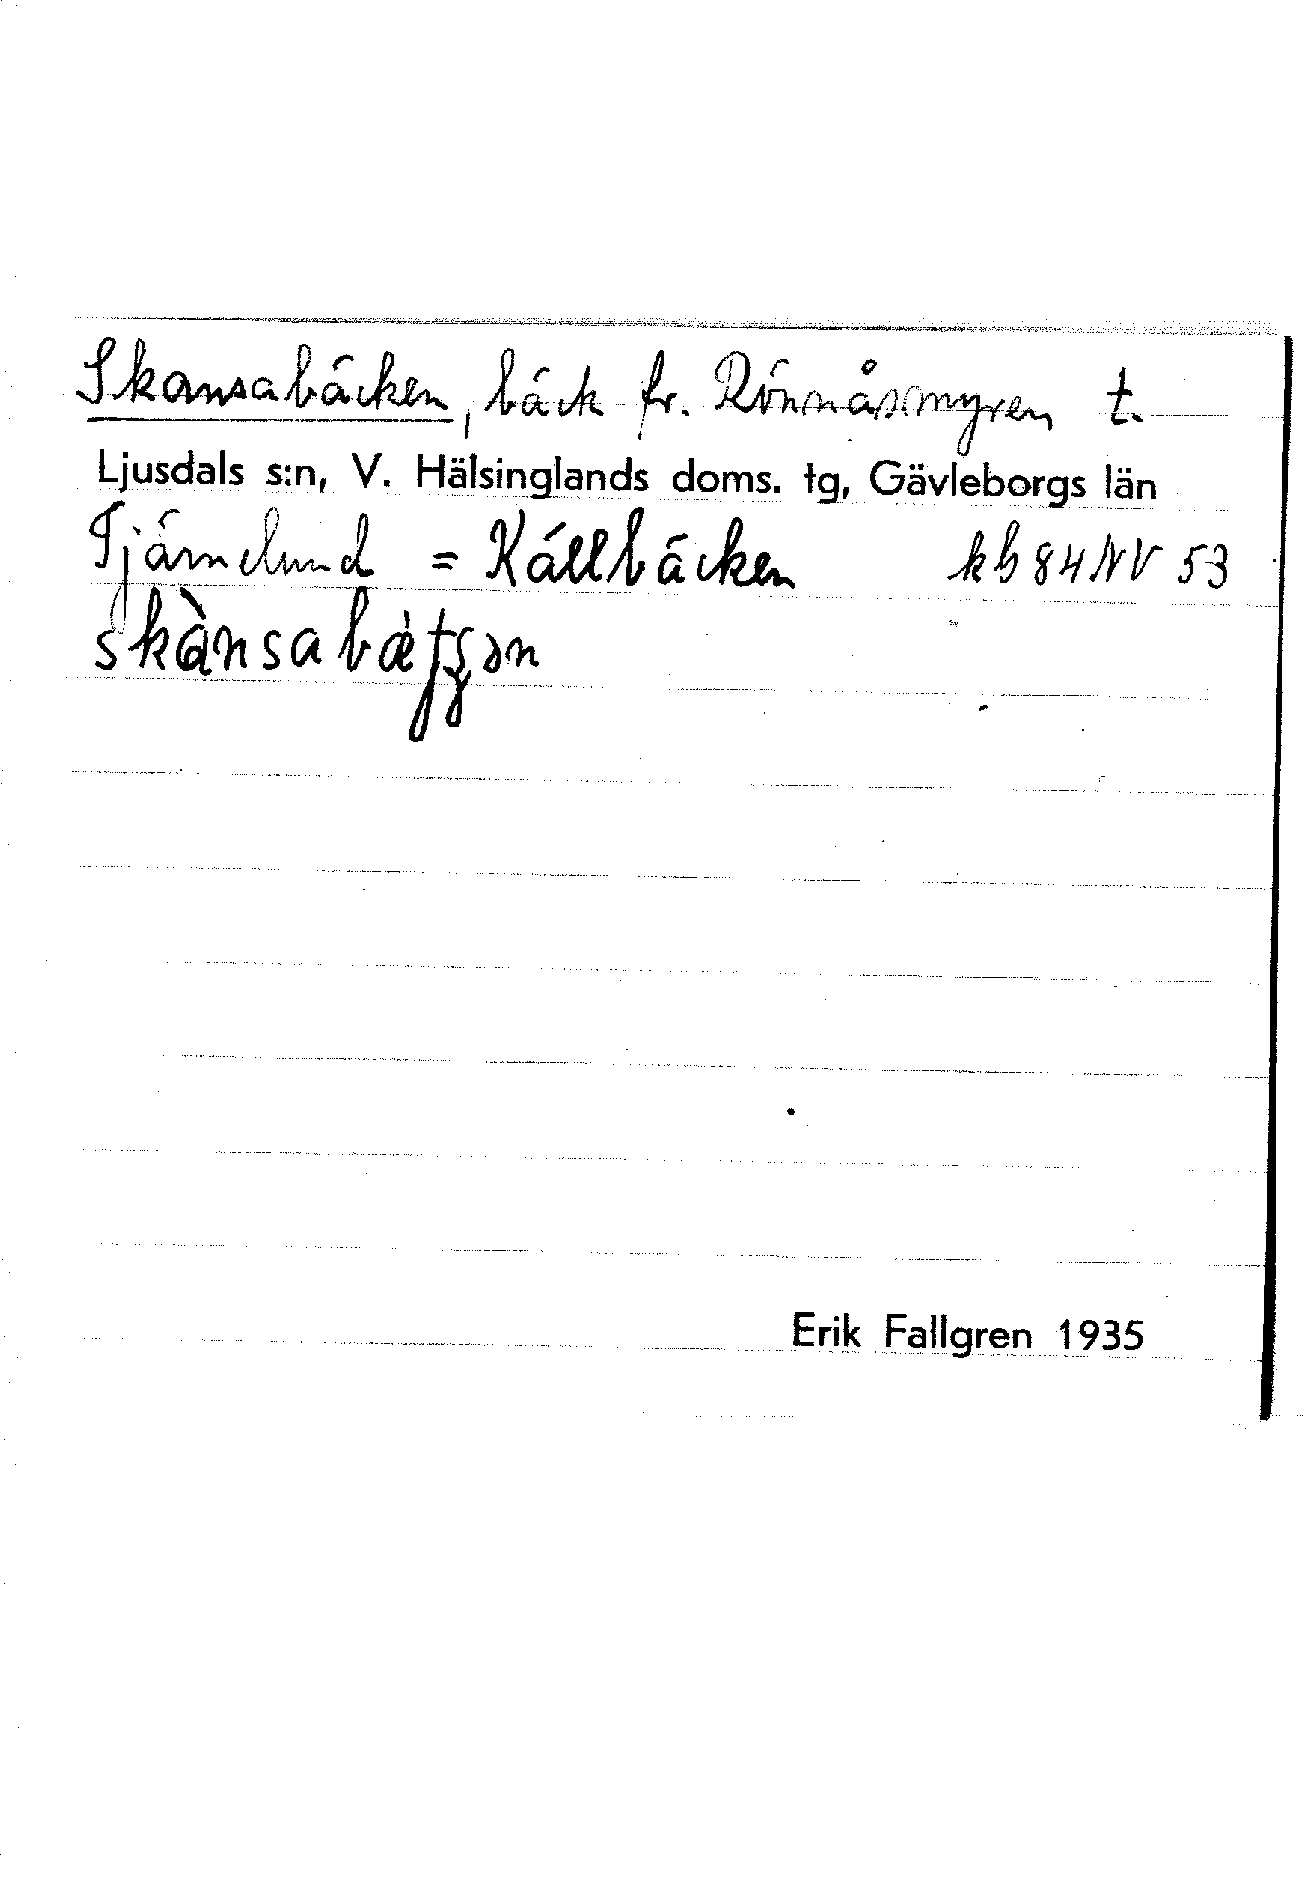 Skansabäcken, bäck fr. Rönnåsmyren t.
Ljusdals s:n, V. Hälsinglands doms. tg, Gävleborgs län
Tjärnelund = Källbäcken kb 84 NV 53
skànsabæ̀tʂən
Erik Fallgren 1935